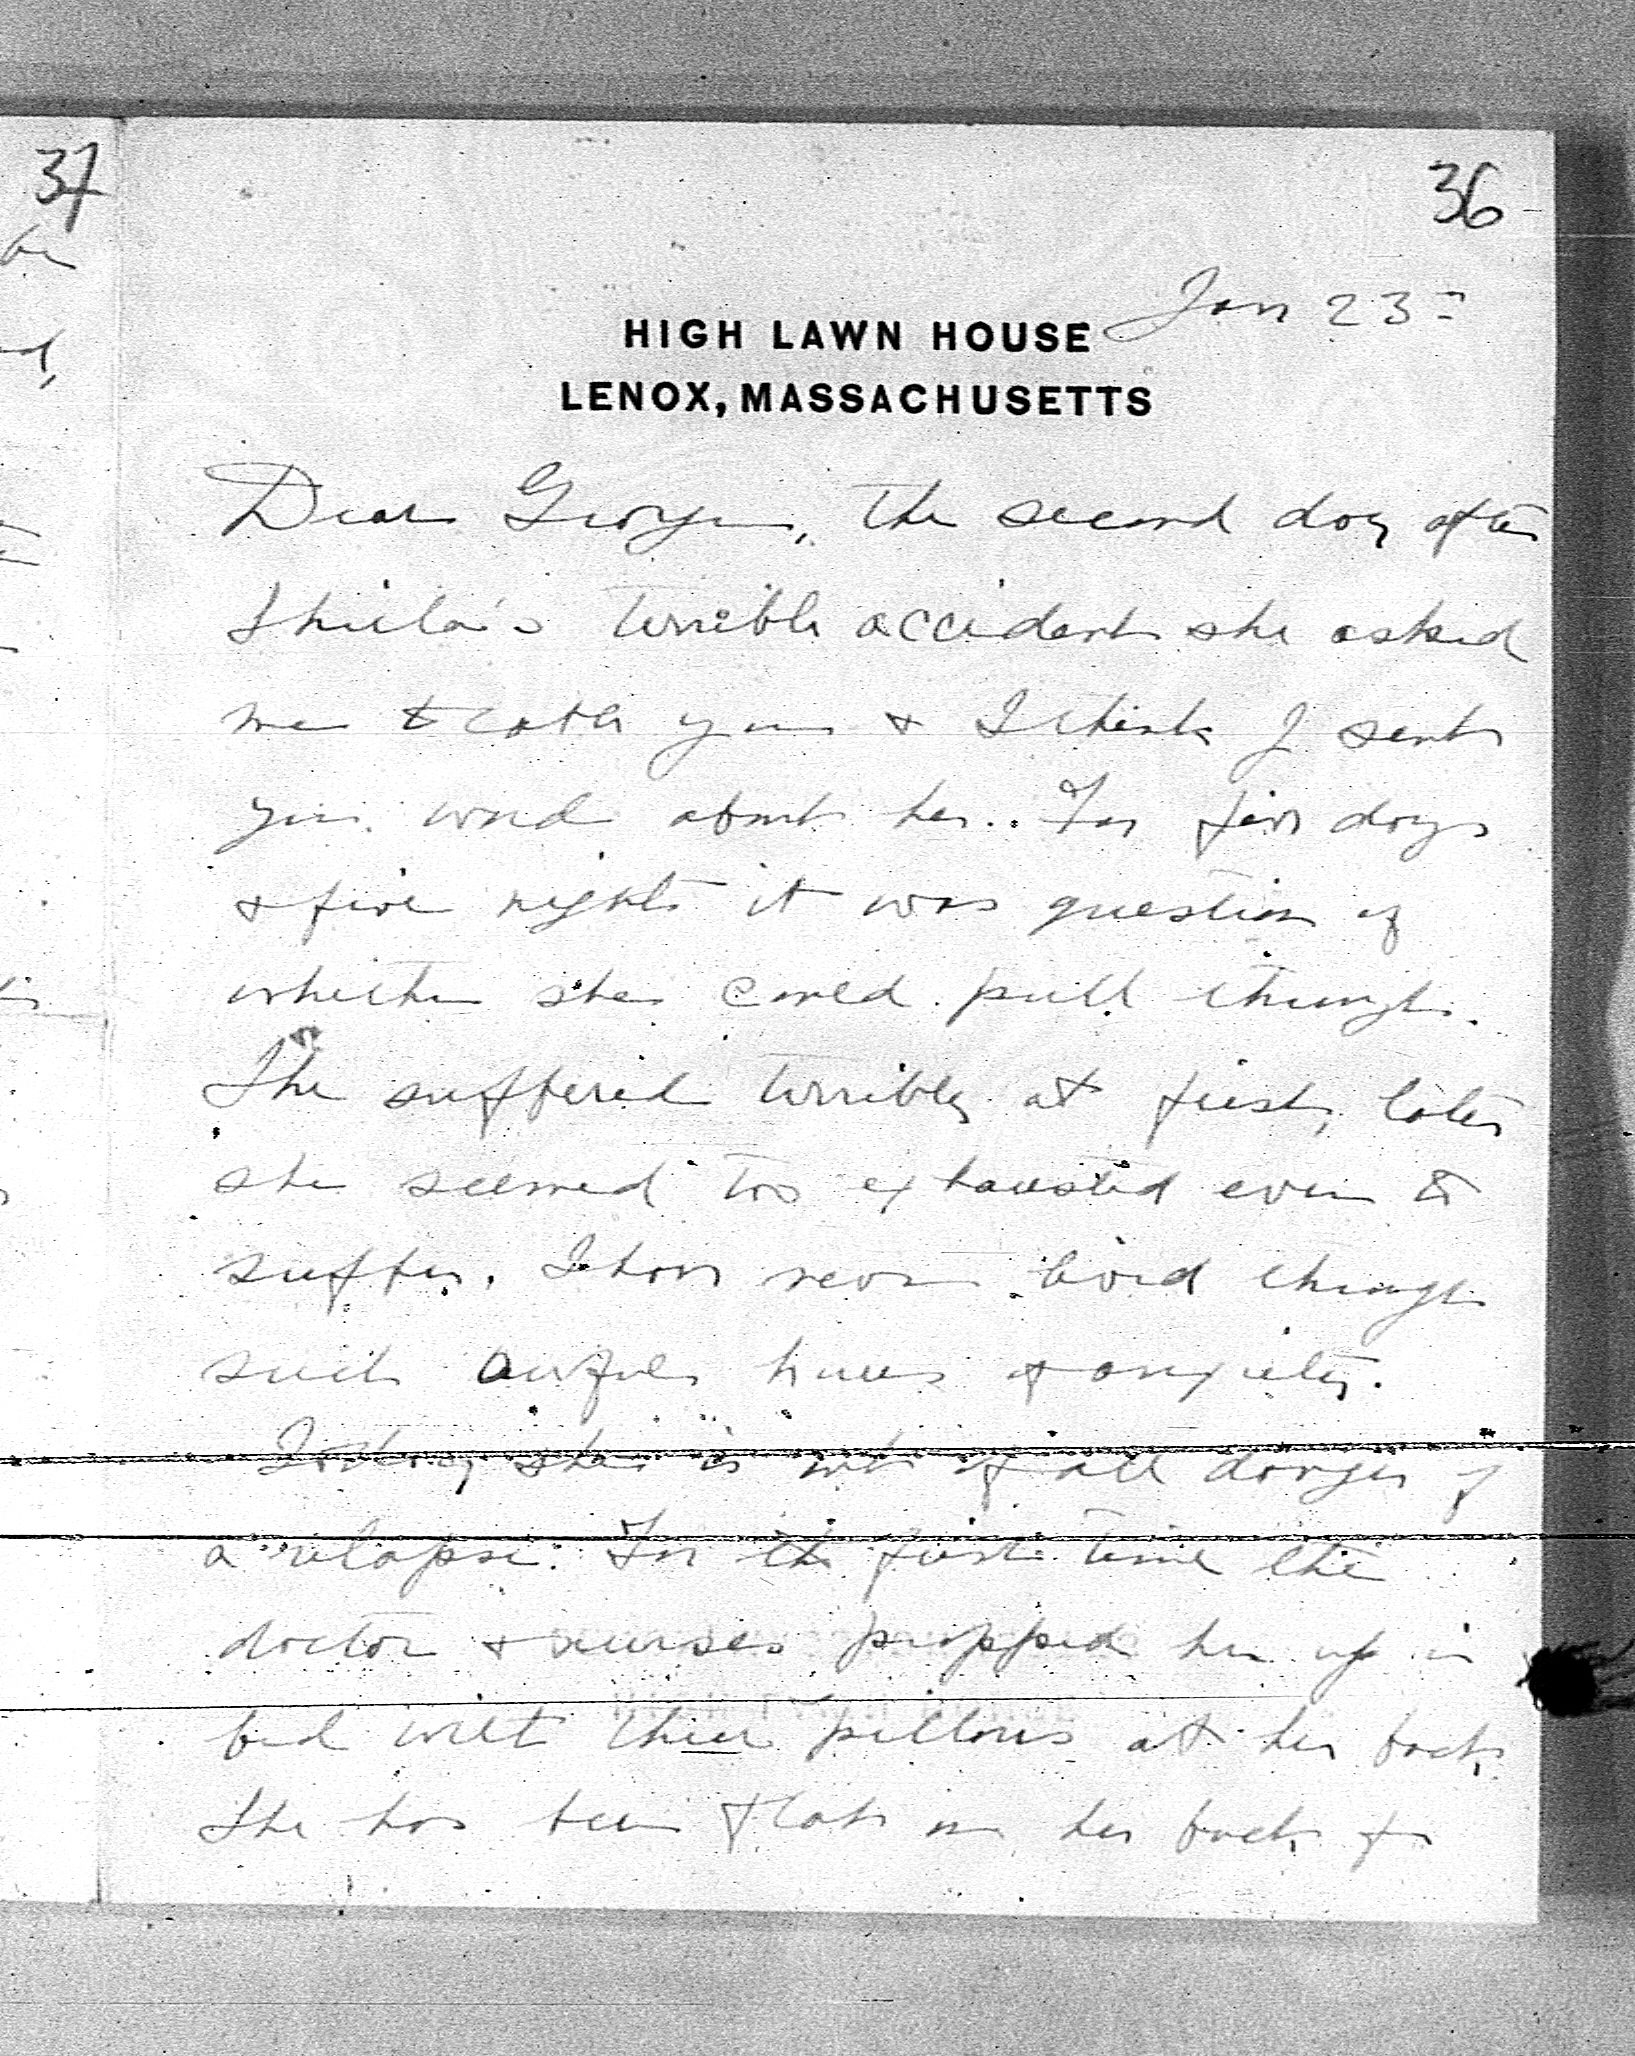 37
36
Jan 23
HIGH LAWN HOUSE
LENOX, MASSACHUSETTS
Dear George, The second day after
Shiela's terrible accident she asked
me to cable you & I think I sent
you word about her. For five days
& five nights it was question of
whether she could pull through.
She suffered terribly at first, later
she seemed too exhausted even to
suffer. I have never lived through
such awful hours of anxiety.
Today she is out of all danger of
a relapse. For the first time the
doctor & nurses propped her up in
bed with three pillows at her back.
She has been flat on her back for